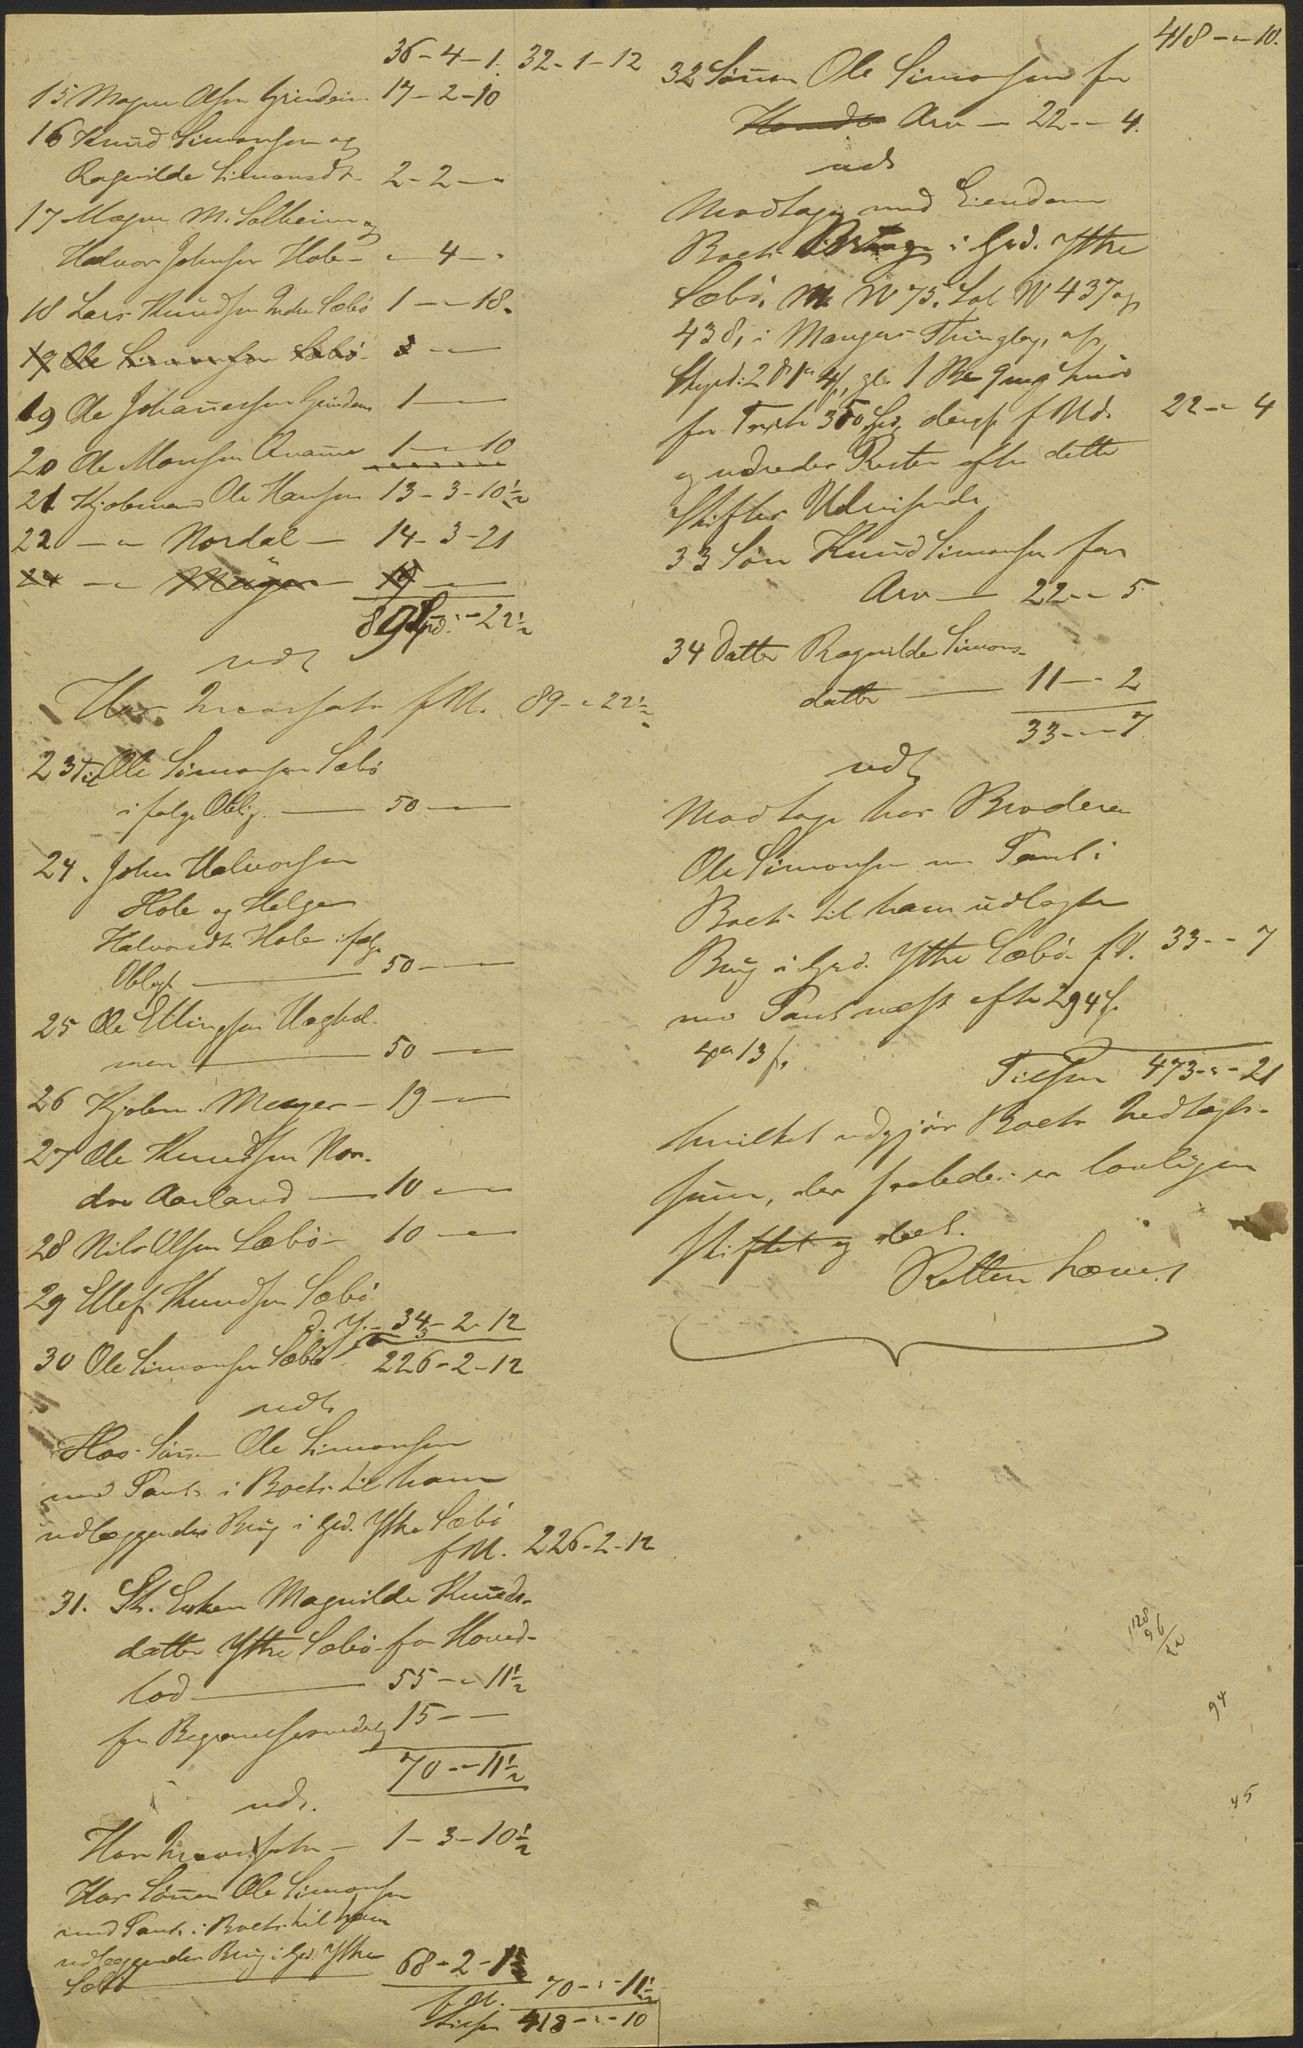 36-4-1. 32-1-12
15 Mogns Olsen Grindem 17-2-10
16 Knud Simonsen og
Ragnilde Simonsdt. 2-2-"
17 Magne M. Solheim og
Halvor Johnsen Hole - " 4 - "
18 Lars Knudsen Indre Sæbø 1-"-18.
19 Ole Simonsen Sæbø 3 - "
19 Ole Johannessen Grindem 1 - "
20 Ole Monsen Qvamme 1-"-10
21 Kjøbmand Ole Hansen 13-3-10½
22 - " Nordal - 14-3-21
24 - " Meyer - 19 - "
89 Spd. " - 22½
udl.
Hos Incassator f Ud. 89-"-22½
23 Til Ole Simonsen Sæbø
ifølge Oblig. - 50 - "
24. John Halvorsen
Hole og Helge
Halvorsdt. Hole ifølge
Obligt. - 50 - "
25 Ole Ellingsen Vaghol-
men - 50 - "
26 Kjøbm. Meyer - 19 - "
27 Ole Knudsen Nor-
dre Aarland - 10 - "
28 Nils Olsen Sæbø - 10 - "
29 Ellef Knudsen Sæbø
d. Y. - 34-2-12
30 Ole Simonsen Sæbø 3
226-2-12
udl.
Hos Sønnen Ole Simonsen
med Pant i Boets til ham
udlæggendes Brug i Grd. Ytre Sæbø
f Ud. 226-2-12
31. Til Enken Magnilde Knuds-
datter Ytre Sæbø for Hoved-
lod - 55-"-11½
for Begravelsesudlæg 15 - "
70-"-11½
udl.
Hos Incassator - 1-3-10½
Hos Sønnen Ole Simonsen
med Pant i Boets til ham
udlæggendes Brug i Grd. Ytre
Sæbø - 68-2-1
f Ud. 70-"-11½
Tilsm 418-"-10
418-"-10.
32 Sønnen Ole Simonsen for
Hoved Arv - 22-"-4.
udl.
Modtager med Eiendom
Boets Brug i Grd. Ytre
Sæbø, M N 75, Løb N 437 og
438, i Manger Thinglag, af
Skyld: 2 d 1 ort 4 s, gl. 1 Bpd
for Taxten 350 Spd, deraf f Ud. 22-"-4
og udreder Resten efter dette
Skiftes Udvisende
33 Søn Knud Simonsen for
Arv - 22-"-5
34 Datter Ragnilde Simons-
datter - 11-"-2
33-"-7
udl.
Modtage hos Broderen
Ole Simonsen m Pant i
Boets til ham udlagte
Brug i Grd. Ytre Sæbø f Ud. 33-"-7
m Pant næst efter 294
4 ort 13 s.
Tilsm 473-"-21
hvilket udgjør Boets Udlægs-
sum, der saaledes er lovligen
skiftet og deelt.
Retten hævet
128
96
22
94
45